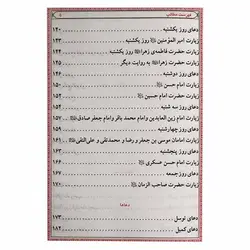 فهرست مطالب
دعای روز یکشنبه ۱۴۰
زیارت امیر المؤمنین روز یکشنبه ۱۴۳
زیارت حضرت فاطمه‌ی زهرا روز یکشنبه ۱۴۴
زیارت حضرت زهرا به روایت دیگر ۱۴۵
دعای روز دوشنبه ۱۴۶
زیارت امام حسن ۱۵۰
زیارت امام حسین ۱۵۱
دعای روز سه شنبه ۱۵۳
زیارت امام زین العابدین و امام محمد باقر و امام جعفر صادق ۱۵۷
دعای روز چهارشنبه ۱۵۹
زیارت امامان موسی بن جعفر و رضا و محمدتقی و علی‌النقی ۱۶۱
دعای روز پنجشنبه ۱۶۳
زیارت حسن عسکری ۱۶۶
دعای روز جمعه ۱۶۷
زیارت حضرت صاحب الزمان ۱۷۰
دعاها
دعای توسل ۱۷۳
دعای کمیل ۱۸۲